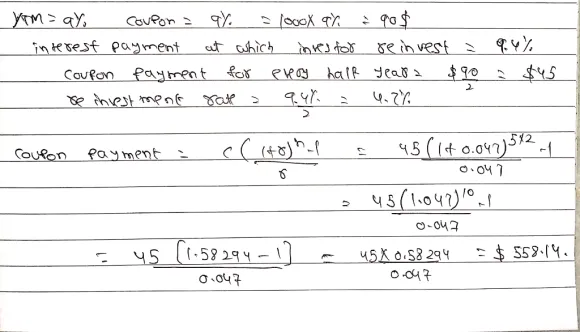 YTM = 9%, coupon = 9% = 1000X 9% = 90$
interest payment at which investor reinvest = 9.4%
coupon payment for every half year = $90/2 = $45
reinvestment rate = 9.4%/2 = 4.7%
coupon payment = c ( (1+r)^n - 1 / r = 45 (1+0.047)^5*2 - 1 / 0.047
= 45 (1.047)^10 - 1 / 0.047
= 45 [1.58294 - 1] / 0.047 = 45 X 0.58294 / 0.047 = $ 558.14.